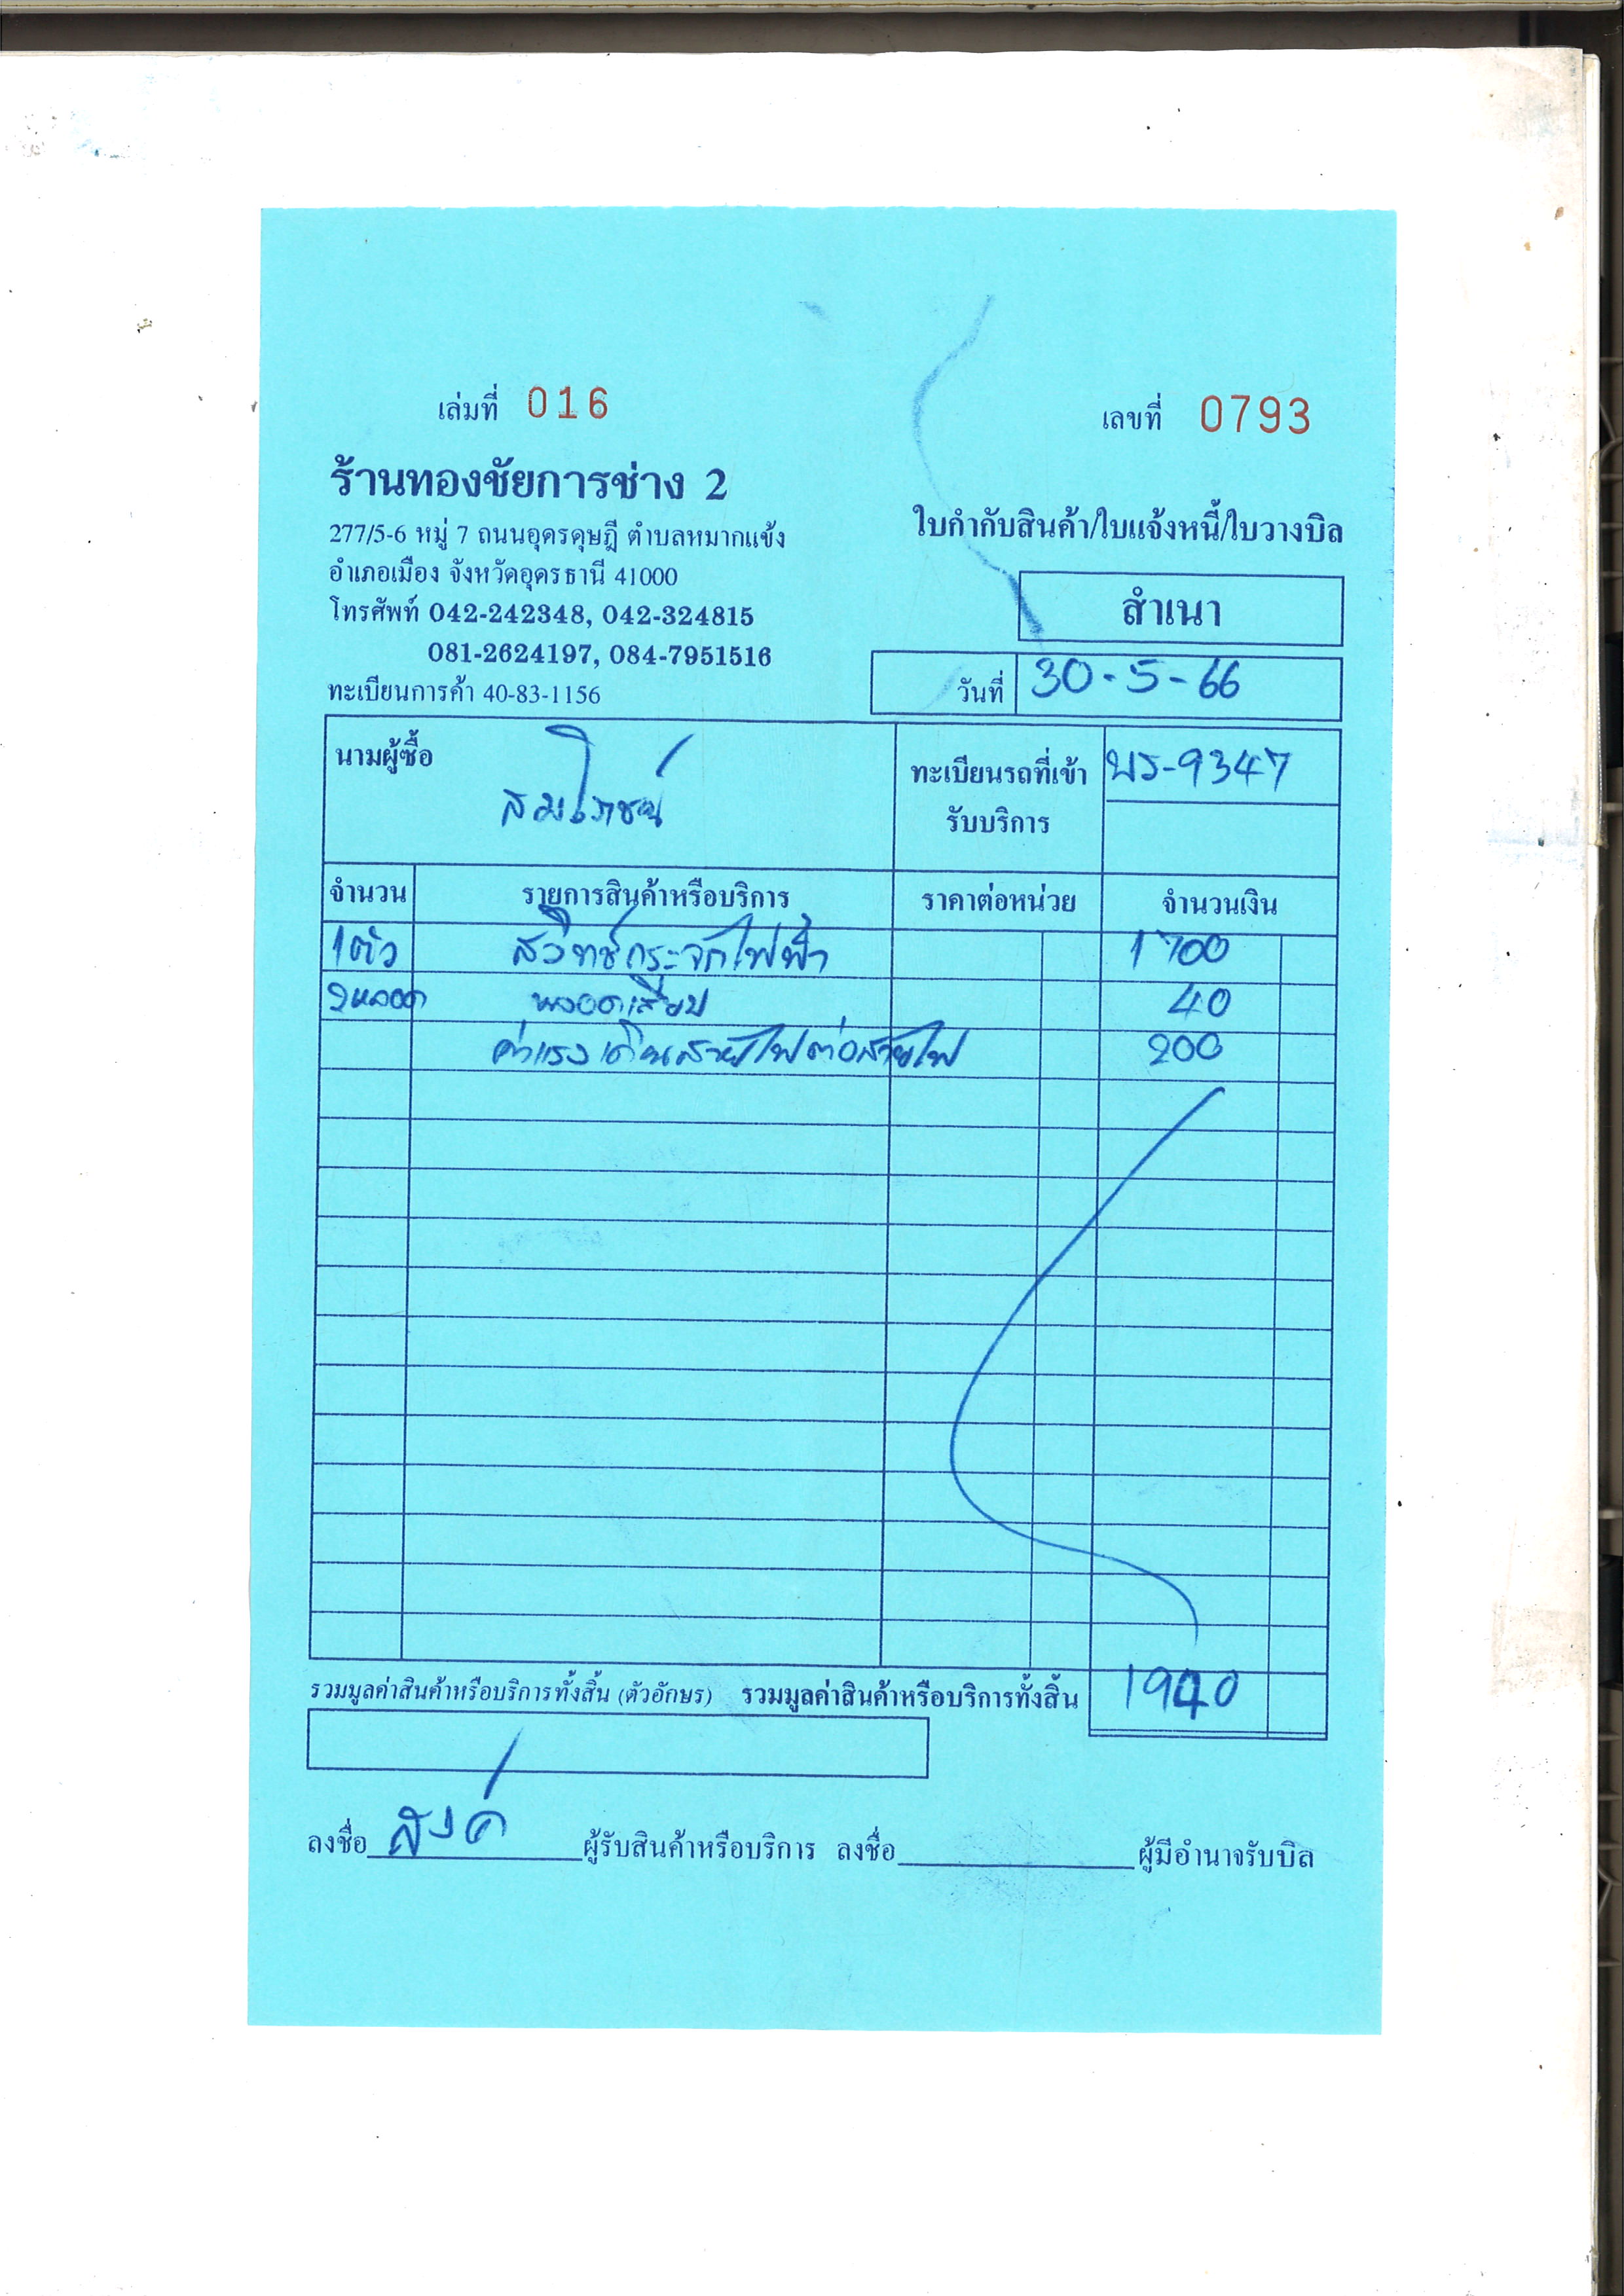 เล่มที่ 016
เลขที่ 0793
ร้านทองชัยการช่าง 2
277/5-6 หมู่ 7 ถนนอุดรดุษฎี ตำบลหมากแข้ง
อำเภอเมือง จังหวัดอุดรธานี 41000
โทรศัพท์ 042-242348, 042-324815
081-2624197, 084-7951516
ทะเบียนการค้า 40-83-1156
ใบกำกับสินค้า/ใบแจ้งหนี้/ใบวางบิล
สำเนา
วันที่ 30-5-66
นามผู้ซื้อ
ทะเบียนรถที่เข้ารับบริการ
พร-9347
จำนวน รายการสินค้าหรือบริการ ราคาต่อหน่วย จำนวนเงิน
1ตัว สวิทช์กระจกไฟฟ้า 1700
2หลอด หลอดเสียบ 40
ค่าแรงเดินสายไฟต่อสายไฟ 200
รวมมูลค่าสินค้าหรือบริการทั้งสิ้น (ตัวอักษร) รวมมูลค่าสินค้าหรือบริการทั้งสิ้น 1940
ลงชื่อ ผู้รับสินค้าหรือบริการ ลงชื่อ ผู้มีอำนาจรับบิล